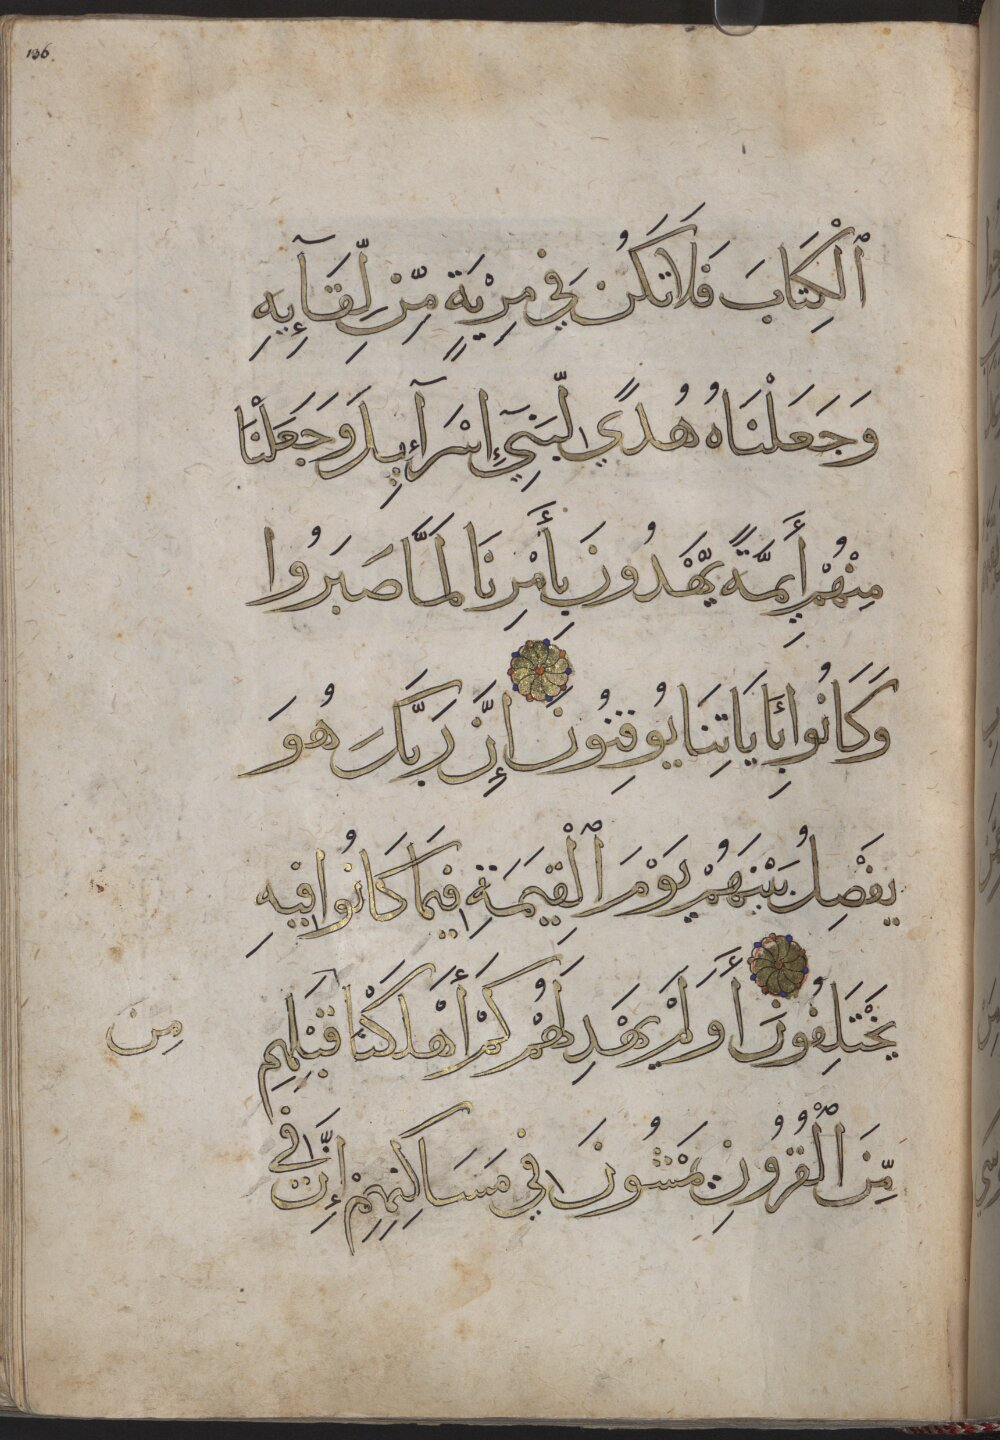 136
ٱلْكِتَابَ فَلَا تَكُن فِي مِرْيَةٍ مِّن لِّقَآئِهِ
وَجَعَلْنَاهُ هُدًي لِّبَنِيٓ إِسْرَآءِيلَ وَجَعَلْنَا
مِنْهُمْ أَئِمَّةً يَهْدُونَ بِأَمْرِنَا لَمَّا صَبَرُوا
وَكَانُوا بِـَٔايَاتِنَا يُوقِنُونَ إِنَّ رَبَّكَ هُوَ
يَفْصِلُ بَيْنَهُمْ يَوْمَ ٱلْقِيَمَةِ فِيمَا كَانُوا فِيهِ
يَخْتَلِفُونَ أَوَلَمْ يَهْدِ لَهُمْ كَمْ أَهْلَكْنَا قَبْلِهِم
مِن
مِّنَ ٱلْقُرُونِ يَمْشُونَ فِي مَسَاكِنِهِمْ إِنَّ فِي